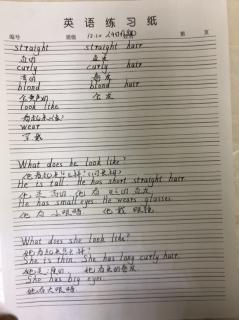 英语练习纸
编号 班级 12.20 第 页
straight straight hair
直的 直发
curly curly hair
卷的 卷发
blond blond hair
金黄色的 金发
look like
看起来(像)
wear
穿戴
What does he look like?
他看起来怎么样?
He is tall. He has short straight hair.
他是高的 他有 短的 直发
He has small eyes. He wears glasses.
他有小眼睛 他戴眼镜
What does she look like?
她看起来怎么样?
She is thin. She has long curly hair.
她是瘦的 她有长的卷发
She has big eyes.
她有大眼睛